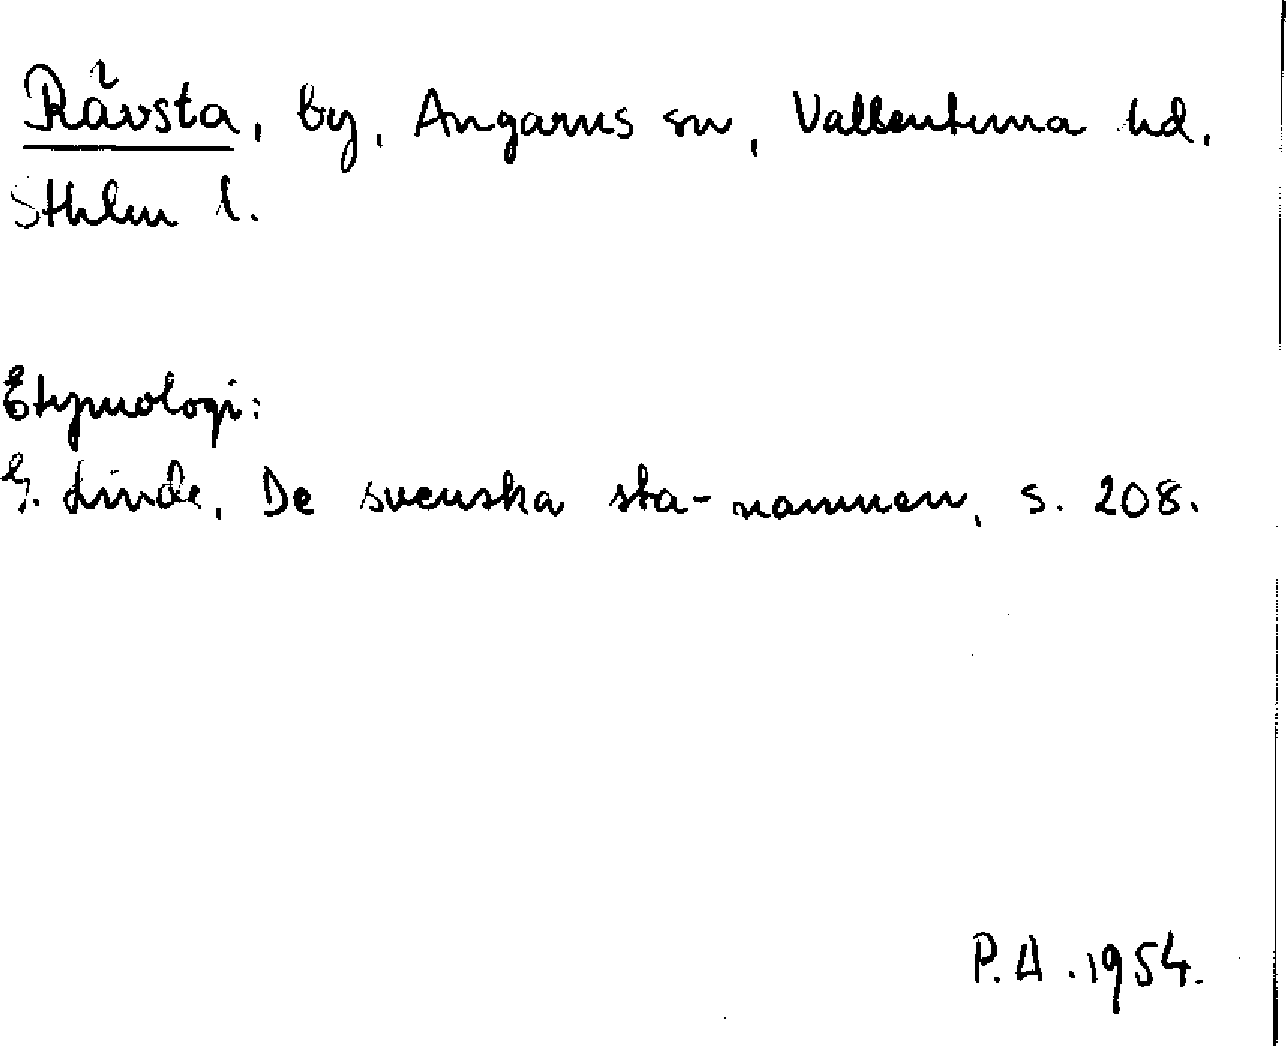 Rävsta, by, Angarns sn, Vallentuna hd,
Sthlm l.
Etymologi:
G. Linde, De svenska sta-namnen, s. 208.
P.A. 1954.